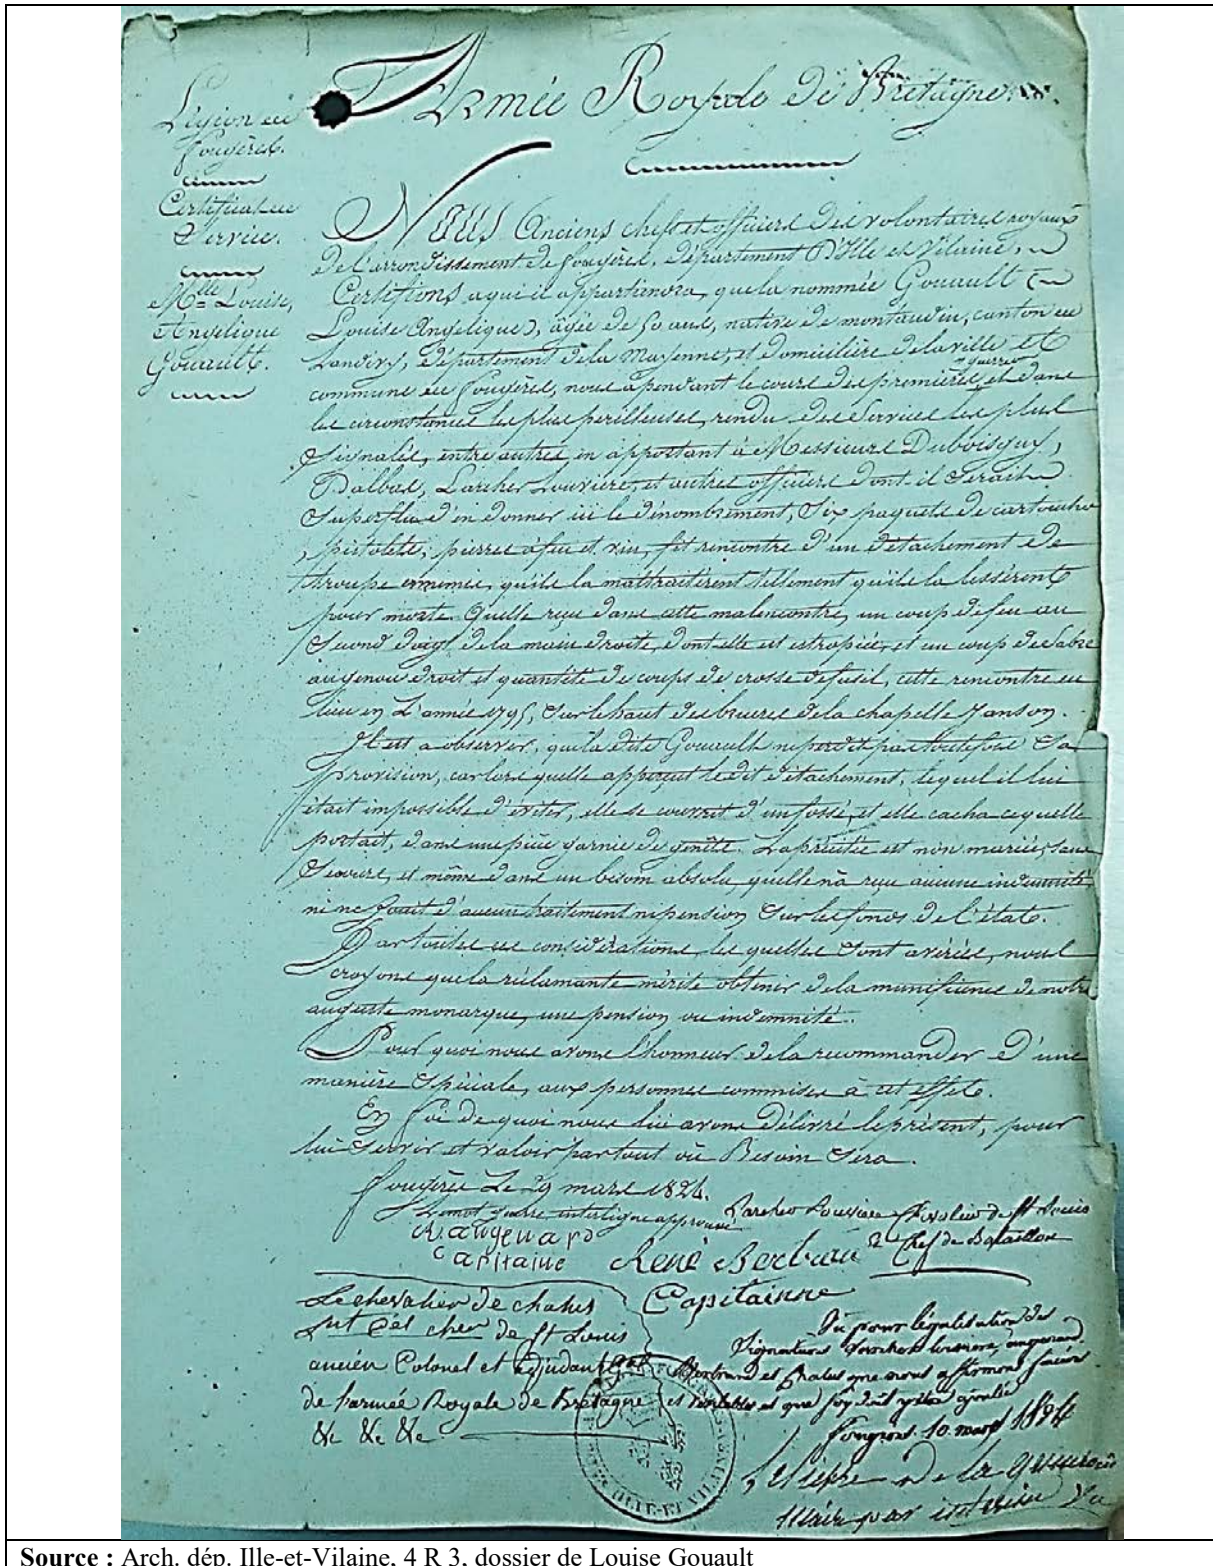 Armée Royale de Bretagne.
Légion de
fougères.
Certificat de
Service.
Mlle Louise,
Angelique
Gouault.
Nous Anciens chefs et officiers des volontaires royaux
de l'arrondissement de fougères, département D'Ille et Vilaine,
Certifions a qui il appartiendra, que la nommée Gouault
Louise Angelique), agée de 50 ans, native de montaudin, canton de
Landivy, département de la Mayenne, et domicilière de la ville et
guerres
commune de fougères, nous a pendant le cours des premières, et dans
les circonstances les plus perilleuses, rendu des Services les plus
Signalés, entre autres en apportant à Messieurs Duboisguy,
Dalbas, Larcher Louvieres, et autres officiers dont il Serait
Superflu d'en donner ici le dénombrement, Six paquets de cartouches
, pistolets, pierres à feu et fit rencontre d'un détachement de
troupe ennemie, quils la maltraitèrent tellement quils la lessèrent
pour morte. Quelle reçu dans cette malencontre, un coup de feu au
Second doigt de la main droite, dont elle est estropiée, et un coup de Sabre
au genou droit et quantité de coups de crosse de fusil, cette rencontre eu
lieu en L'année 1795, Sur le haut des brueres de la chapelle Janson.
Il est a observer, que la dite Gouault ne perdit pas toutefois Sa
provision, car lors quelle apperçut le dit détachement, lequel il lui
était impossible d'éviter, elle se couvrit d'un fossé, et elle cacha ce quelle
portait, dans une pièce garnie de genêts. La précitée est non mariée, sans
Secours, et même dans un besoin absolu, quelle n'a reçu aucune indemnité,
ni ne Jouit d'aucun traitement ni pension Sur les fonds de l'état.
Par toutes ces considérations, les quelles Sont avérées, nous
croyons que la réclamante mérite obtenir de la munificence de notre
auguste monarque, une pension ou indemnité.
Pour quoi nous avons l'honneur de la recommander D'une
manière Spéciale, aux personnes commises à cet effet.
En foi de quoi nous lui avons délivré le présent, pour
lui Servir et valoir partout où Besoin Sera.
fougères Le 29 mars 1824.
Le mot guerre interligne approuvé
Larcher Louviere Chevalier de St Louis
Chef de Bataillon
capitaine
René Bertran
Capitainne
Le chevalier de chalus
de St Louis
ancien Colonel et adjudant gal
de l'armée Royale de Bretagne
&c &c &c
Vu pour légalisation des
Signatures
Bertrand et Chalus que nous affirmons
et véritables et que foy doit
1824
Maire par interim
ILLE-ET-VILAINE
Source : Arch. dép. Ille-et-Vilaine, 4 R 3, dossier de Louise Gouault